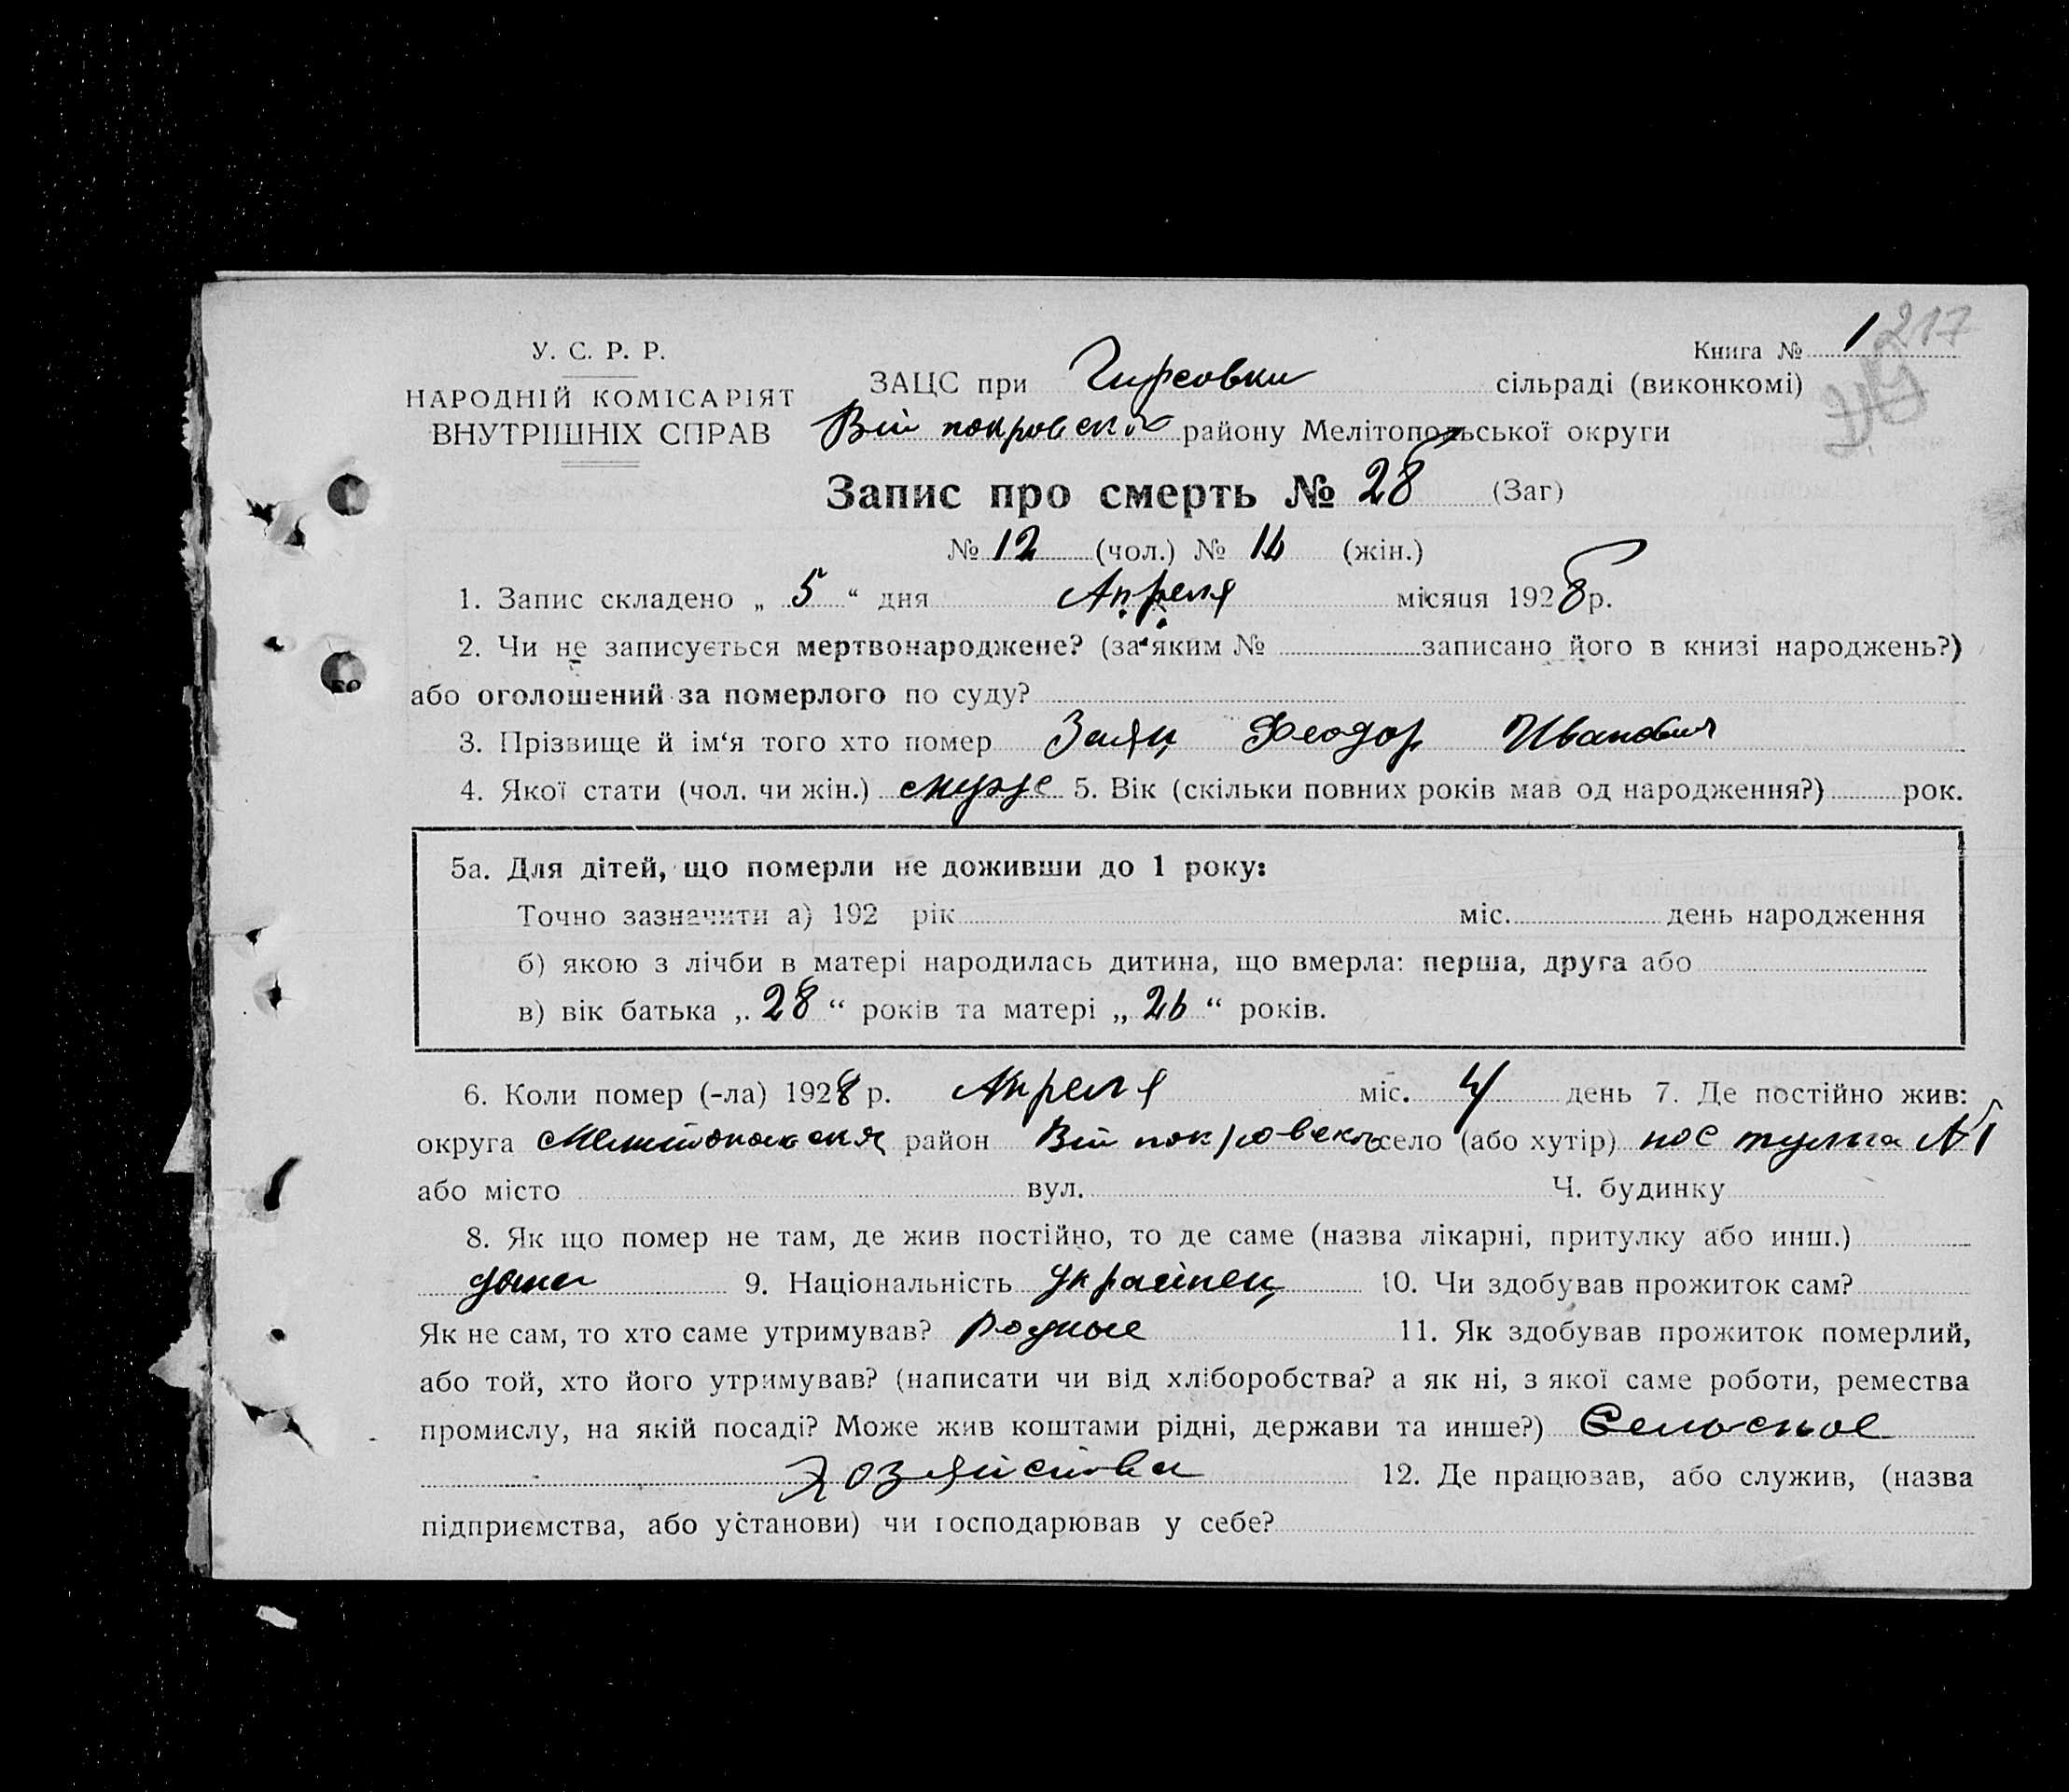 У. С. Р. Р.
НАРОДНІЙ КОМІСАРІЯТ
ВНУТРІШНІХ СПРАВ
Книга № 1 217
ЗАЦС при Гирсовки сільраді (виконкомі)
району Мелітопольської округи
Запис про смерть № 28 (Заг)
№ 12 (чол.) № 16 (жін.)
1. Запис складено „ 5 “ дня Апреля місяця 1928 р.
2. Чи не записується мертвонароджене? (за яким № записано його в книзі народжень?)
або оголошений за померлого по суду?
3. Прізвище й ім‘я того хто помер Заяц Феодор Иванович
4. Якої стати (чол. чи жін.) муж 5. Вік (скільки повних років мав од народження?) рок.
5а. Для дітей, що померли не доживши до 1 року:
Точно зазначити а) 192 рік міс. день народження
б) якою з лічби в матері народилась дитина, що вмерла: перша, друга або
в) вік батька „ 28 “ років та матері „ 26 “ років.
6. Коли помер (-ла) 1928 р. Апреля міс. 4 день 7. Де постійно жив:
округа Мелитопольская район село (або хутір) пос тулга №1
або місто вул. Ч. будинку
8. Як що помер не там, де жив постійно, то де саме (назва лікарні, притулку або инш.)
дома 9. Національність украинец 10. Чи здобував прожиток сам?
Як не сам, то хто саме утримував? родные 11. Як здобував прожиток померлий,
або той, хто його утримував? (написати чи від хліборобства? а як ні, з якої саме роботи, ремества
промислу, на якій посаді? Може жив коштами рідні, держави та инше?) Сельское
хозяйства 12. Де працював, або служив, (назва
підприємства, або установи) чи господарював у себе?